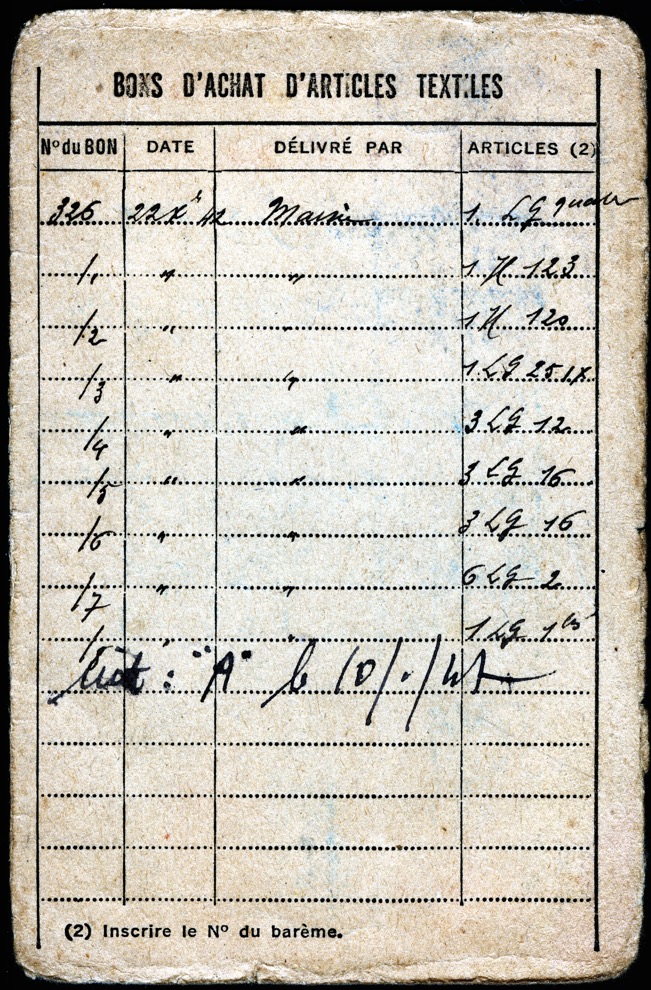 BONS D'ACHAT D'ARTICLES TEXTILES
N° du BON DATE DÉLIVRÉ PAR ARTICLES (2)
326 22 Xr 42 Mairie 1 LG
/1 " " 1 H 123
/2 " " 1 H 120
/3 " " 1 LG 25
/4 " " 3 LG 12
/5 " " 3 LG 16
/6 " " 3 LG 16
/7 " " 6 LG 2
/ " " 1 LG 1
: "A" le 10/./4
(2) Inscrire le N° du barème.